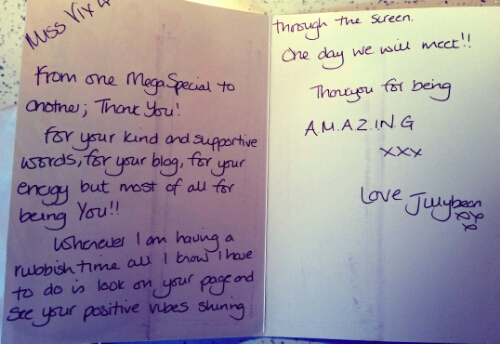 Miss Vix
From one Mega Special to
another, Thank You!
For your kind and supportive
words, for your blog, for your
energy but most of all for
being You!!
Whenever I am having a
rubbish time all I know I have
to do is look on your page and
see your positive vibes shining
through the screen.
One day we will meet!!
Thankyou for being
A.M.A.Z.I.N.G
xxx
Love Jellybean
xx
x